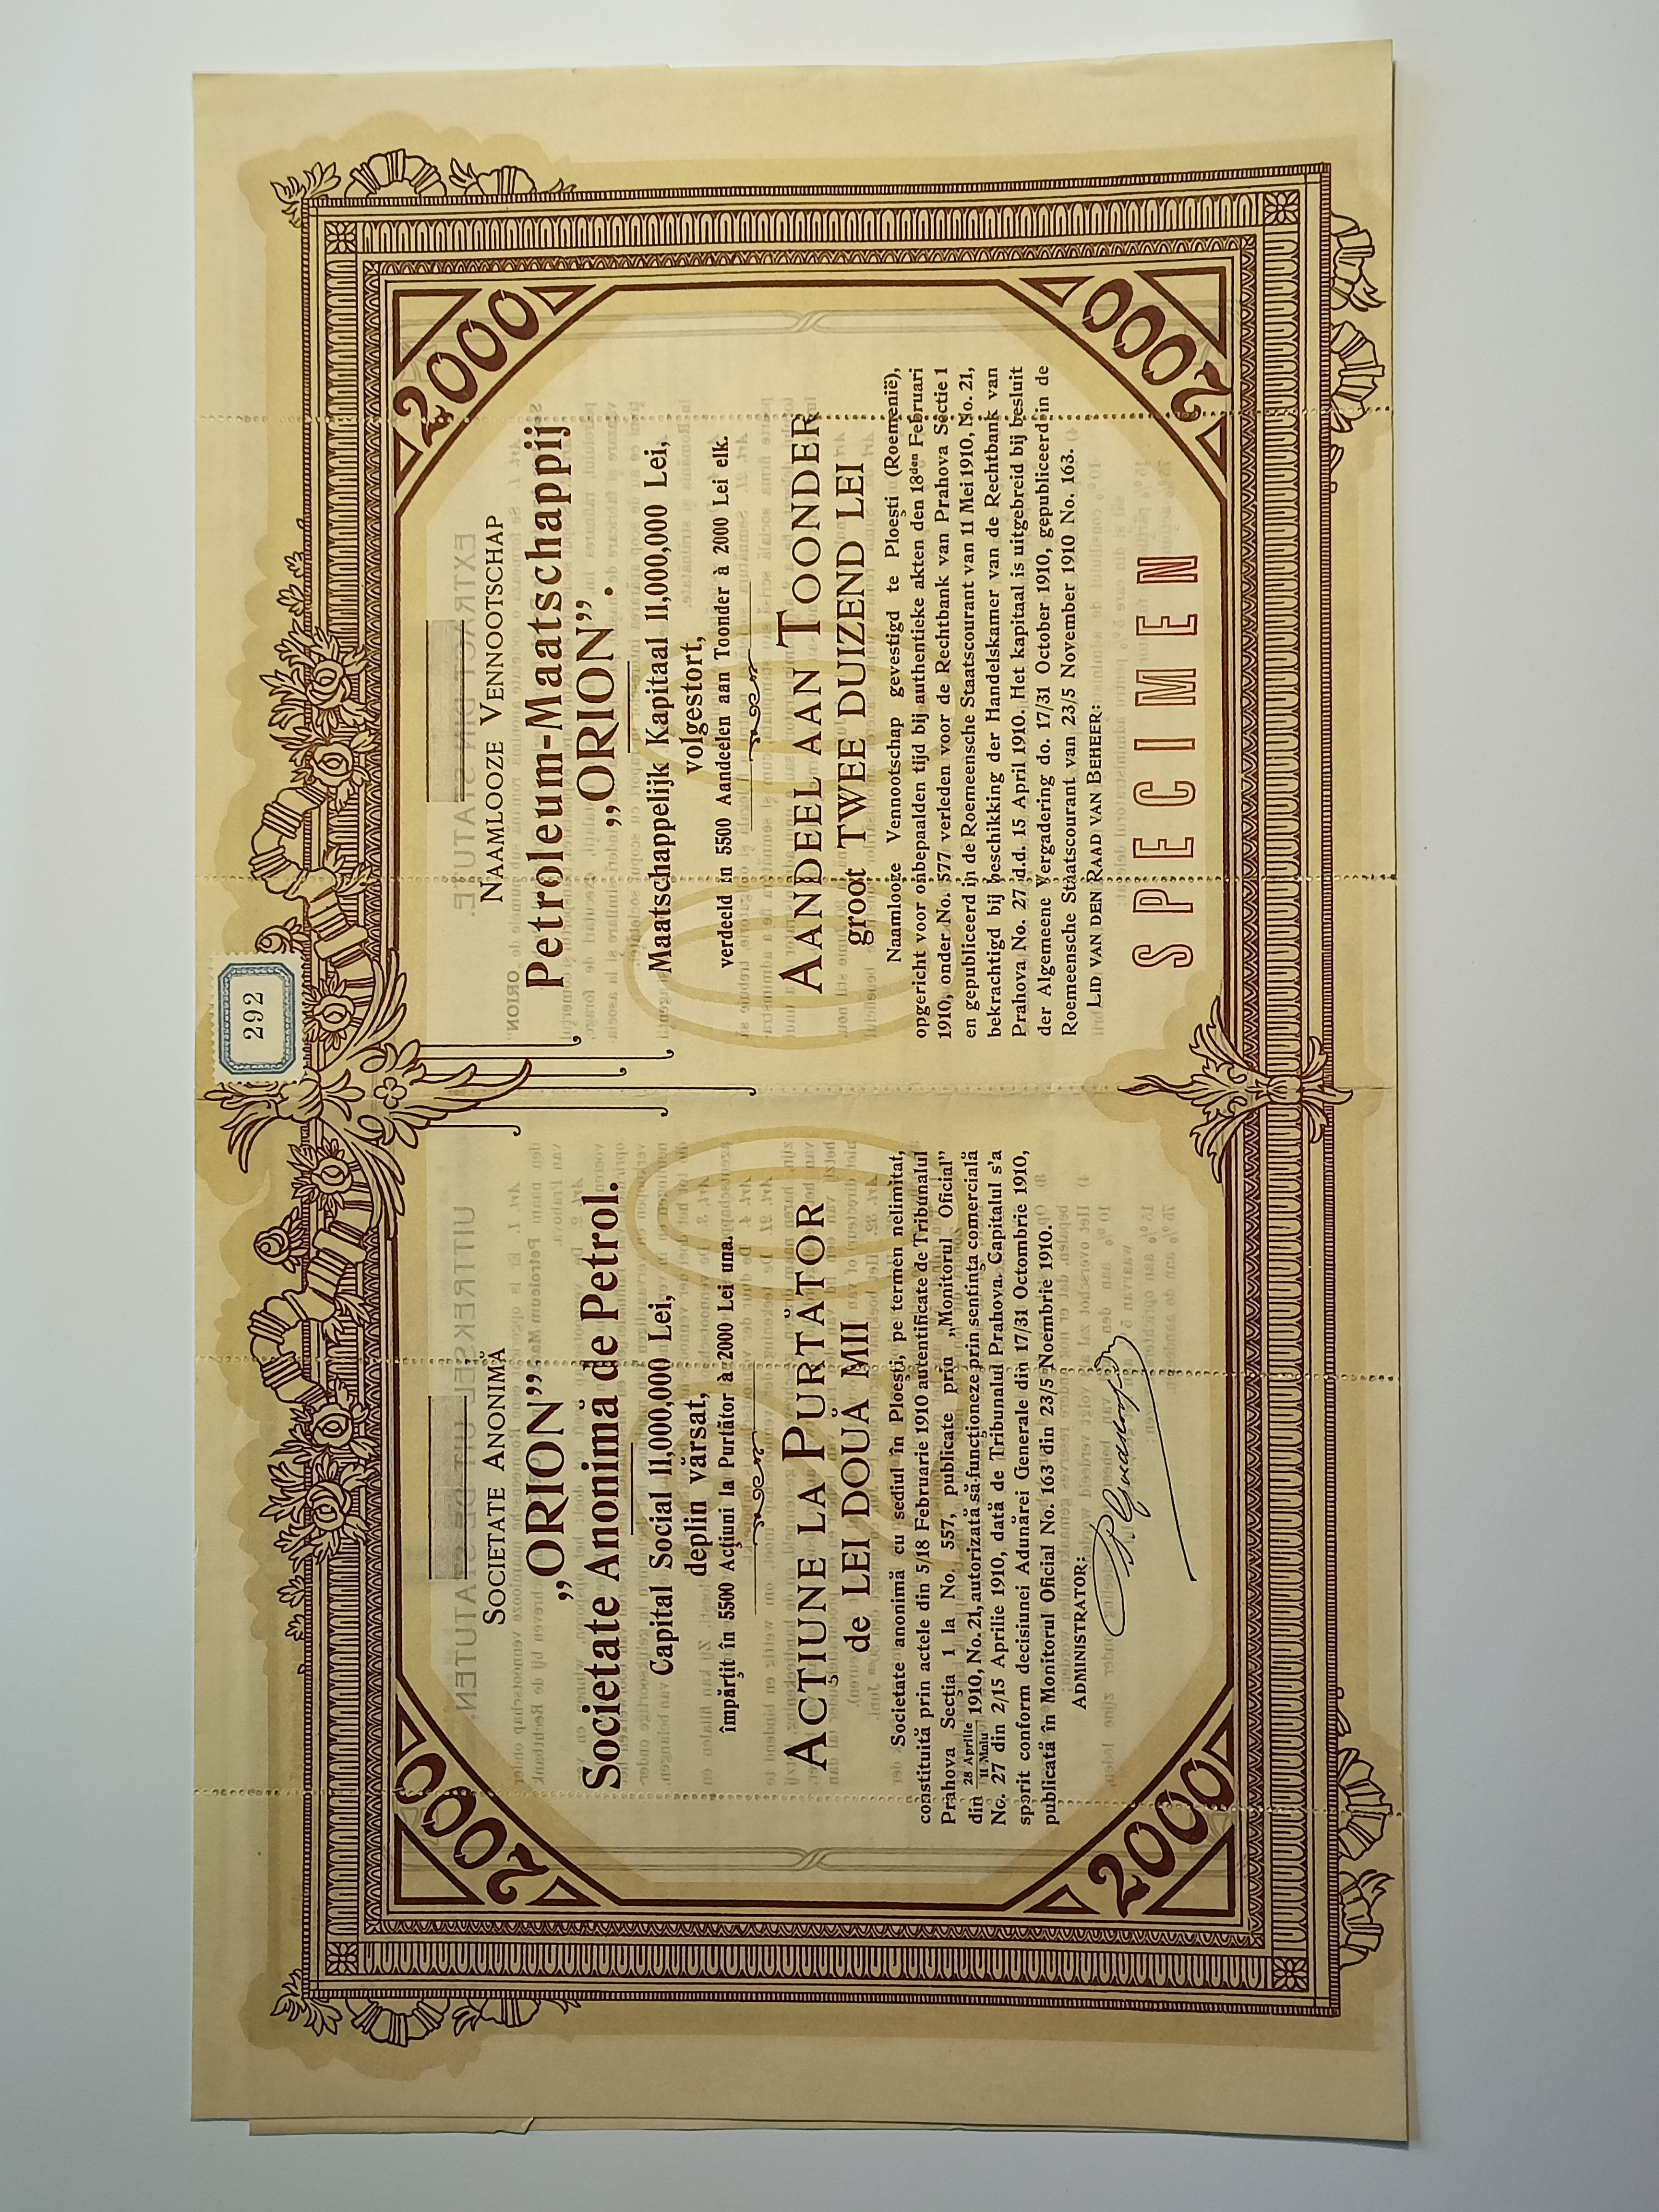 292
2000
2000
SOCIETATE ANONIMĂ
„ORION”
Societate Anonimă de Petrol.
Capital Social 11,000,000 Lei,
deplin vărsat,
împărţit în 5500 Acţiuni la Purtător à 2000 Lei una.
ACŢIUNE LA PURTĂTOR
de LEI DOUĂ MII
Societate anonimă cu sediul în Ploeşti, pe termen nelimitat,
constituită prin actele din 5/18 Februarie 1910 autentificate de Tribunalul
Prahova Secţia 1 la No. 557, publicate prin „Monitorul Oficial”
din 28 Aprilie / 11 Maiu 1910, No. 21, autorizată să funcţioneze prin sentinţa comercială
No. 27 din 2/15 Aprilie 1910, dată de Tribunalul Prahova. Capitalul s'a
sporit conform decisiunei Adunărei Generale din 17/31 Octombrie 1910,
publicată în Monitorul Oficial No. 163 din 23/5 Noembrie 1910.
ADMINISTRATOR:
NAAMLOOZE VENNOOTSCHAP
Petroleum-Maatschappij
„ORION”.
Maatschappelijk Kapitaal 11,000,000 Lei,
volgestort,
verdeeld in 5500 Aandeelen aan Toonder à 2000 Lei elk.
AANDEEL AAN TOONDER
groot TWEE DUIZEND LEI
Naamlooze Vennootschap gevestigd te Ploeşti (Roemenië),
opgericht voor onbepaalden tijd bij authentieke akten den 18den Februari
1910, onder No. 577 verleden voor de Rechtbank van Prahova Sectie 1
en gepubliceerd in de Roemeensche Staatscourant van 11 Mei 1910, No. 21,
bekrachtigd bij beschikking der Handelskamer van de Rechtbank van
Prahova No. 27 d.d. 15 April 1910. Het kapitaal is uitgebreid bij besluit
der Algemeene Vergadering do. 17/31 October 1910, gepubliceerd in de
Roemeensche Staatscourant van 23/5 November 1910 No. 163.
LID VAN DEN RAAD VAN BEHEER:
SPECIMEN
2000
2000